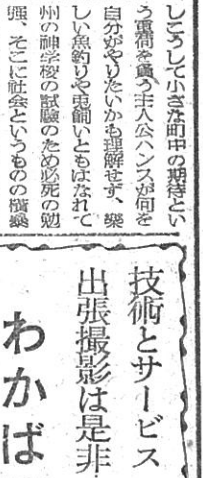 しこうして小さな町中の期待とい
う重荷を負う主人公ハンスが何を
自分がやりたいかも理解せず、楽
しい魚釣りや兎飼いともはなれて
州の神学校の試験のため必死の勉
強、そこに社会というものの横暴
技術とサービス
出張撮影は是非
わかば